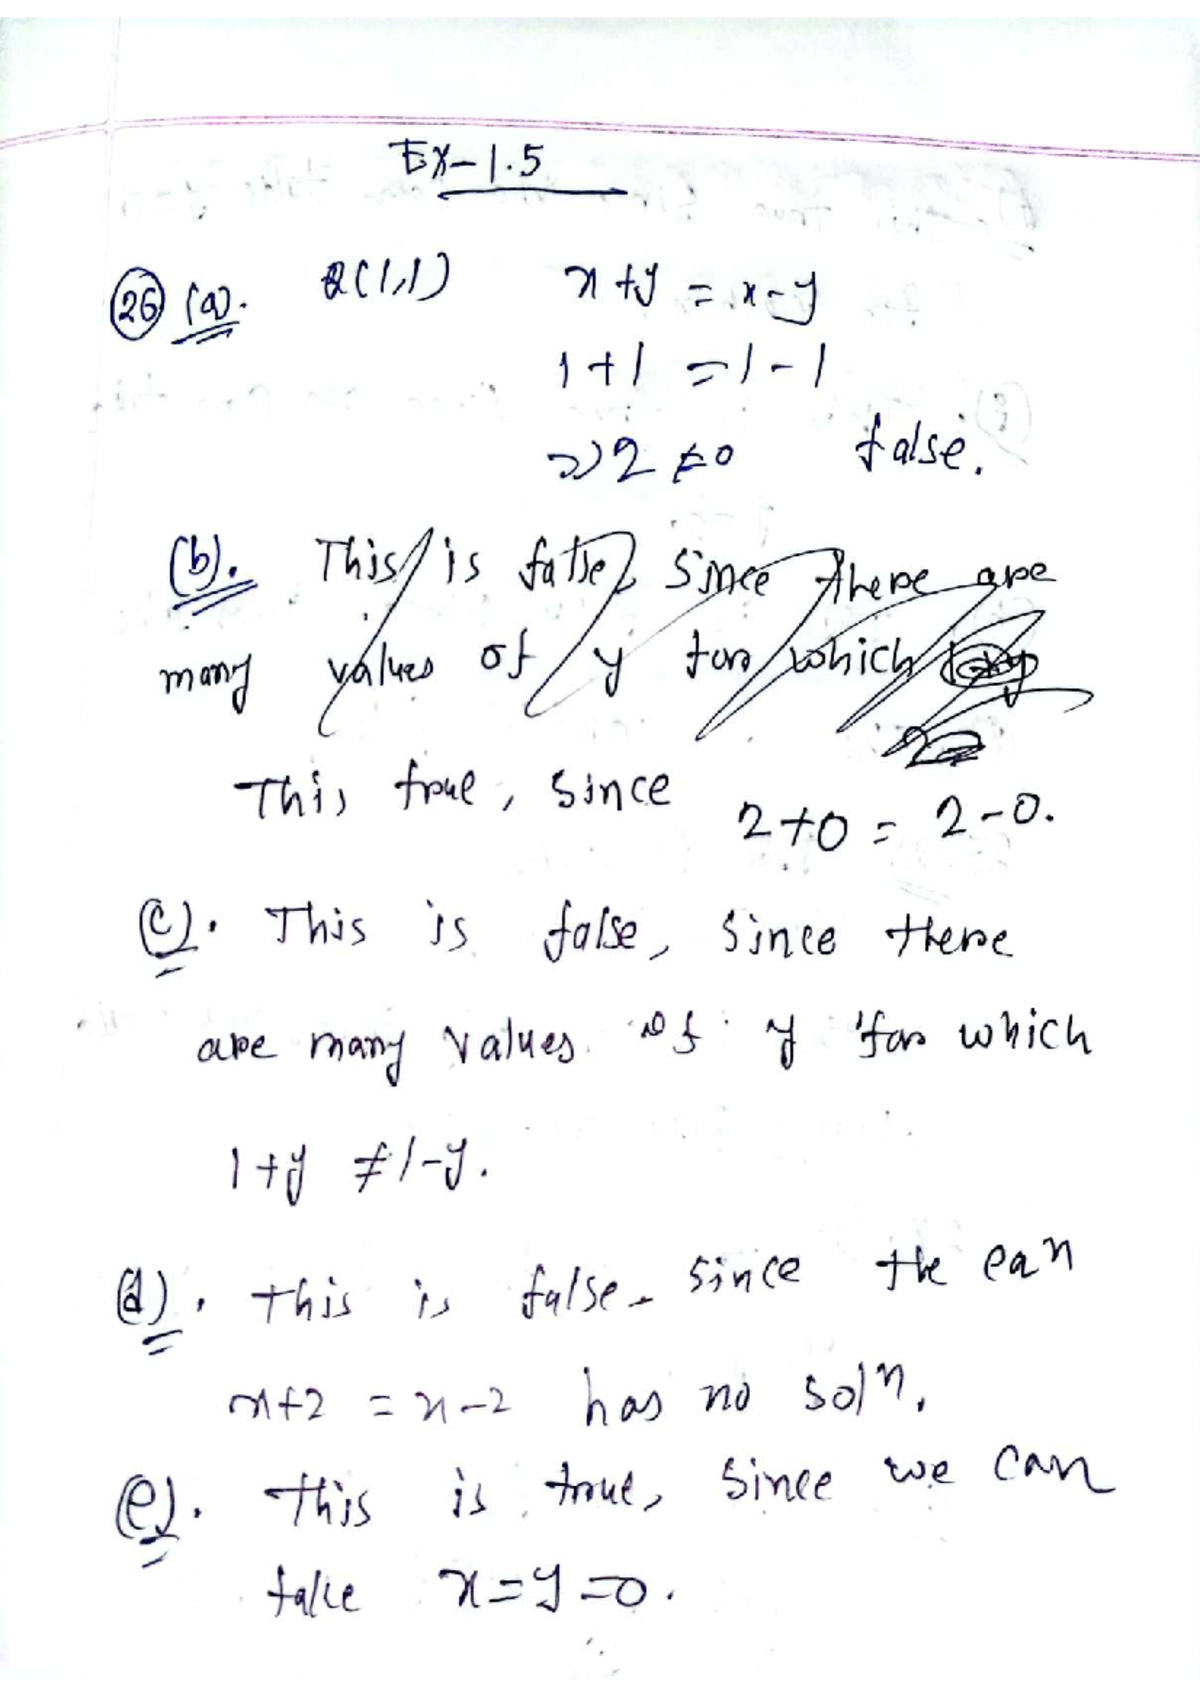 Ex-1.5
26 (a). Q(1,1) x+y = x-y
1+1 = 1-1
⇒ 2 ≠ 0 false.
(b). This is false, since there are
many values of y for which
This true, since 2+0 = 2-0.
(c). This is false, since there
are many values of y for which
1+y ≠ 1-y.
(d). this is false. since the eqn
x+2 = x-2 has no soln.
(e). this is true, since we can
take x=y=0.